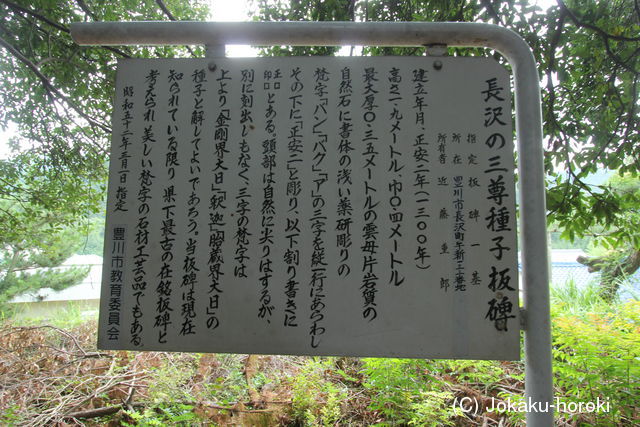 長沢の三尊種子板碑
指定 板碑 一基
所在 豊川市長沢町午新
所有者 近藤重郎
建立年月 正安二年(一三〇〇年)
高さ一・九メートル、巾〇・四メートル
最大厚〇・三五メートルの雲母片岩質の
自然石に書体の浅い薬研彫りの
梵字「バン」「バク」「ア」の三字を縦一行にあらわし
その下に「正安二」と彫り、以下割り書きに
正口
卯口とある。頭部は自然に尖りはするが、
別に刻出しもなく、三字の梵字は
上より「金剛界大日」「釈迦」「胎蔵界大日」の
種子と解してよいであろう。当板碑は現在
知られている限り県下最古の在銘板碑と
考えられ美しい梵字の石材工芸品でもある。
昭和五十三年三月一日指定
豊川市教育委員会
(C) Jokaku-horoki